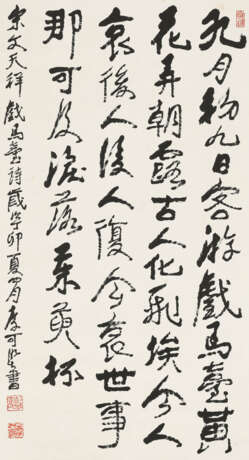 九月初九日客游戲馬臺黃
花弄朝露古人化飛埃今人
哀後人後人復今哀世事
那可及淚落茱萸杯
宋文天祥戲馬臺詩歲卯夏月李可書